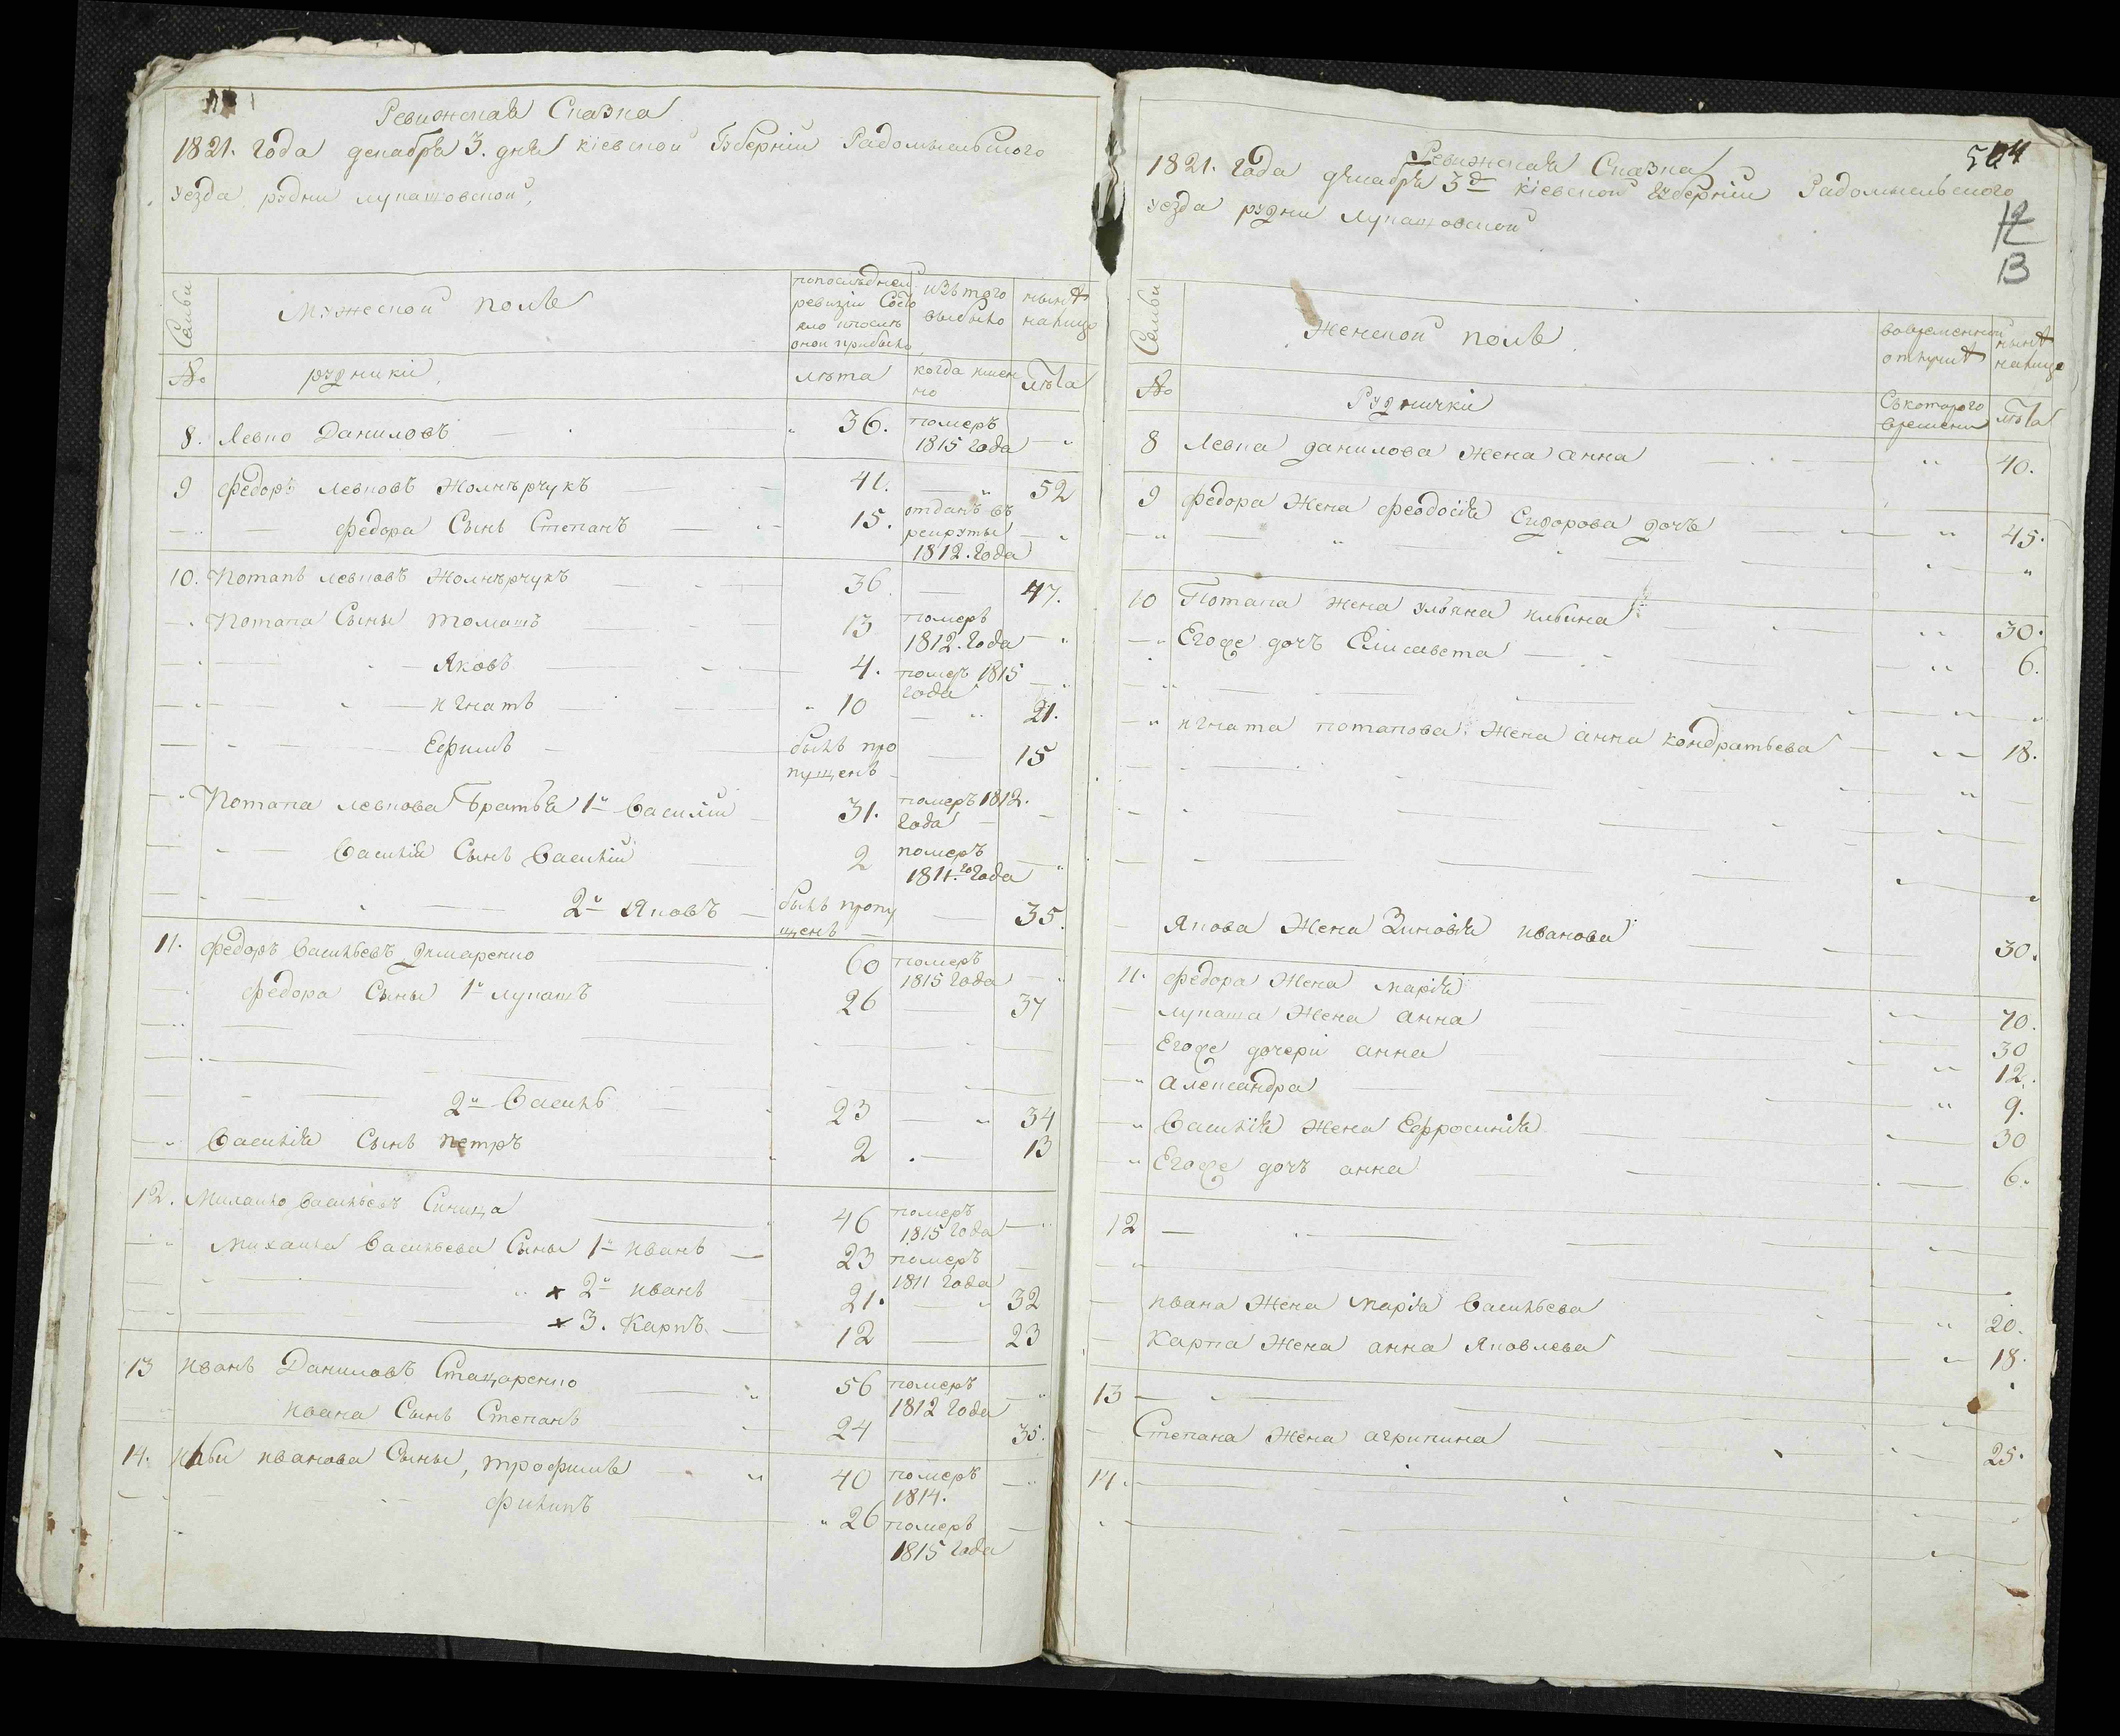 Ревижская Сказка
1821. года декабря 3. дня кіевской Губерніи Радомысльского
уезда рудни лупатовской,
Семьи
Мужеской полъ
попоследней
ревизіи Состо
яло ипосле
оной прибыло
изъ того
выбыло
нынѣ
налицо
№
рудники,
лѣта
когда имен
но
лѣта
8. Левко Даниловъ 36. померъ
1815 года
9 Федоръ левковъ Жолнѣрчукъ 41. 52
Федора Сынъ Степанъ 15. отданъ въ
рекруты
1812. года
10. Потапъ левковъ Жолнѣрчукъ 36 47.
Потапа Сыны томашъ 13 померъ
1812. года
Яковъ 4. померъ 1815
года
игнатъ 10 21.
Ефимъ былъ про
пущенъ 15
Потапа левкова Братья 1й Василій 31. померъ 1812.
года
Василія Сынъ Василій 2 померъ
1811.го года
2й Яковъ былъ пропу
щенъ 35.
11. Федоръ Васильевъ 60 померъ
1815 года
Федора Сыны 1й лупашъ 26 37
2й Василь 23 34
Василія Сынъ петръ 2 13
12. Михайло Васильевъ Синица 46 померъ
1815 года
Михайла Васильева Сыны 1й иванъ 23 померъ
1811 года
х 2й иванъ 21. 32
х 3. Карпъ 12 23
13 иванъ Даниловъ Стацаренко 56 померъ
1812 года
ивана Сынъ Степанъ 24 35.
14. ильи иванова Сыны, трофимъ 40 померъ
1814.
филипъ 26 померъ
1815 года
504
Ревижская Сказка
1821. года декабря 3д кіевской губерніи Радомысльского
уезда рудни лупатовской
12
13
Семьи
Женской полъ
вовременной
отлучкѣ
нынѣ
налице
№
Руднички
Съкоторого
времени
лѣта
8 Левка данилова Жена анна 40.
9 Федора Жена феодосія Сидорова дочъ 45.
10 Потапа жена ульяна ильина 30.
Егоже дочъ Елисавета 6.
игната потапова Жена анна кондратьева 18.
Якова Жена Зиновія иванова 30.
11. Федора Жена марія 70.
лупаша Жена анна 30
Егоже дочери анна 12.
александра 9.
Василія жена Ефросинія 30
Егоже дочъ анна 6.
12
ивана Жена марія Васильева 20.
Карпа Жена анна Яковлева 18.
13
Степана жена агрипина 25.
14.